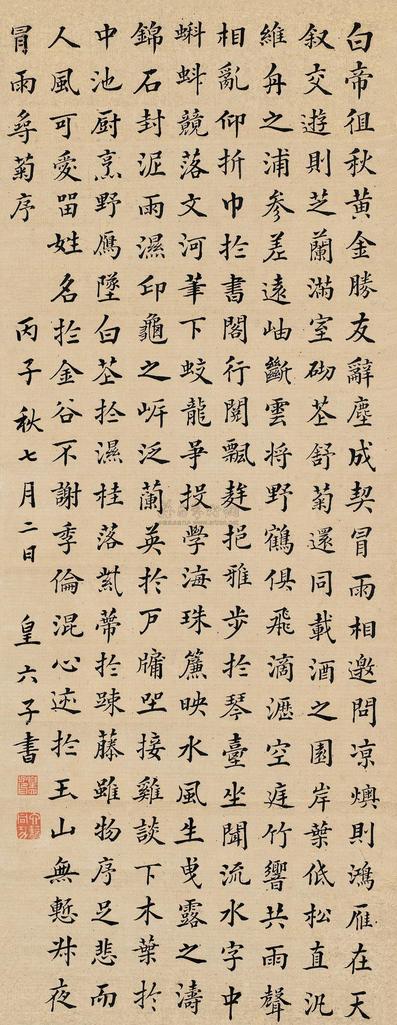 白帝徂秋黄金勝友辭塵成契冒雨相邀問凉燠則鴻雁在天
叙交遊則芝蘭滿室砌芲舒菊還同載酒之園岸葉低松直汎
維舟之浦參差遠岫斷雲將野鶴俱飛滴瀝空庭竹響共雨聲
相亂仰折巾於書閣行閱飄蕤挹雅步於琴臺坐聞流水字中
蝌蚪競落文河筆下蛟龍爭投學海珠簾映水風生曳露之濤
錦石封泥雨濕印龜之岍泛蘭英於戶牖坐接雞談下木葉於
中池厨烹野鴈墜白芲於濕桂落紫蒂於踈藤雖物序足悲而
人風可愛畱姓名於金谷不謝季倫混心迹於玉山無慙叔夜
冒雨尋菊序 丙子秋七月二日 皇六子書